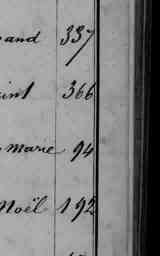 and 337
int 366
Marie 94
Noël 192